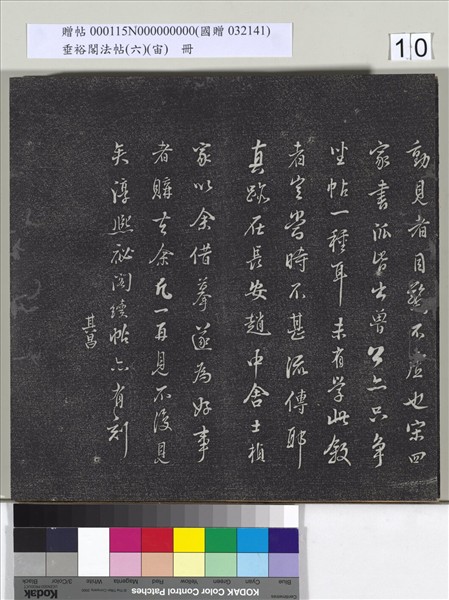 贈帖 000115N000000000(國贈 032141)
垂裕閣法帖(六)(宙) 冊
10
動見者目驚不虛也宋四
家書派皆出魯公亦只爭
坐帖一種耳未有學此敘
者豈當時不甚流傳耶
真跡在長安趙中舍士楨
家以余借摹遂為好事
者購去余凡一再見不復見
矣淳熙祕閣續帖亦有刻
其昌
Kodak
KODAK Color Control Patches
Blue Cyan Green Yellow Red Magenta White 3/Color Black